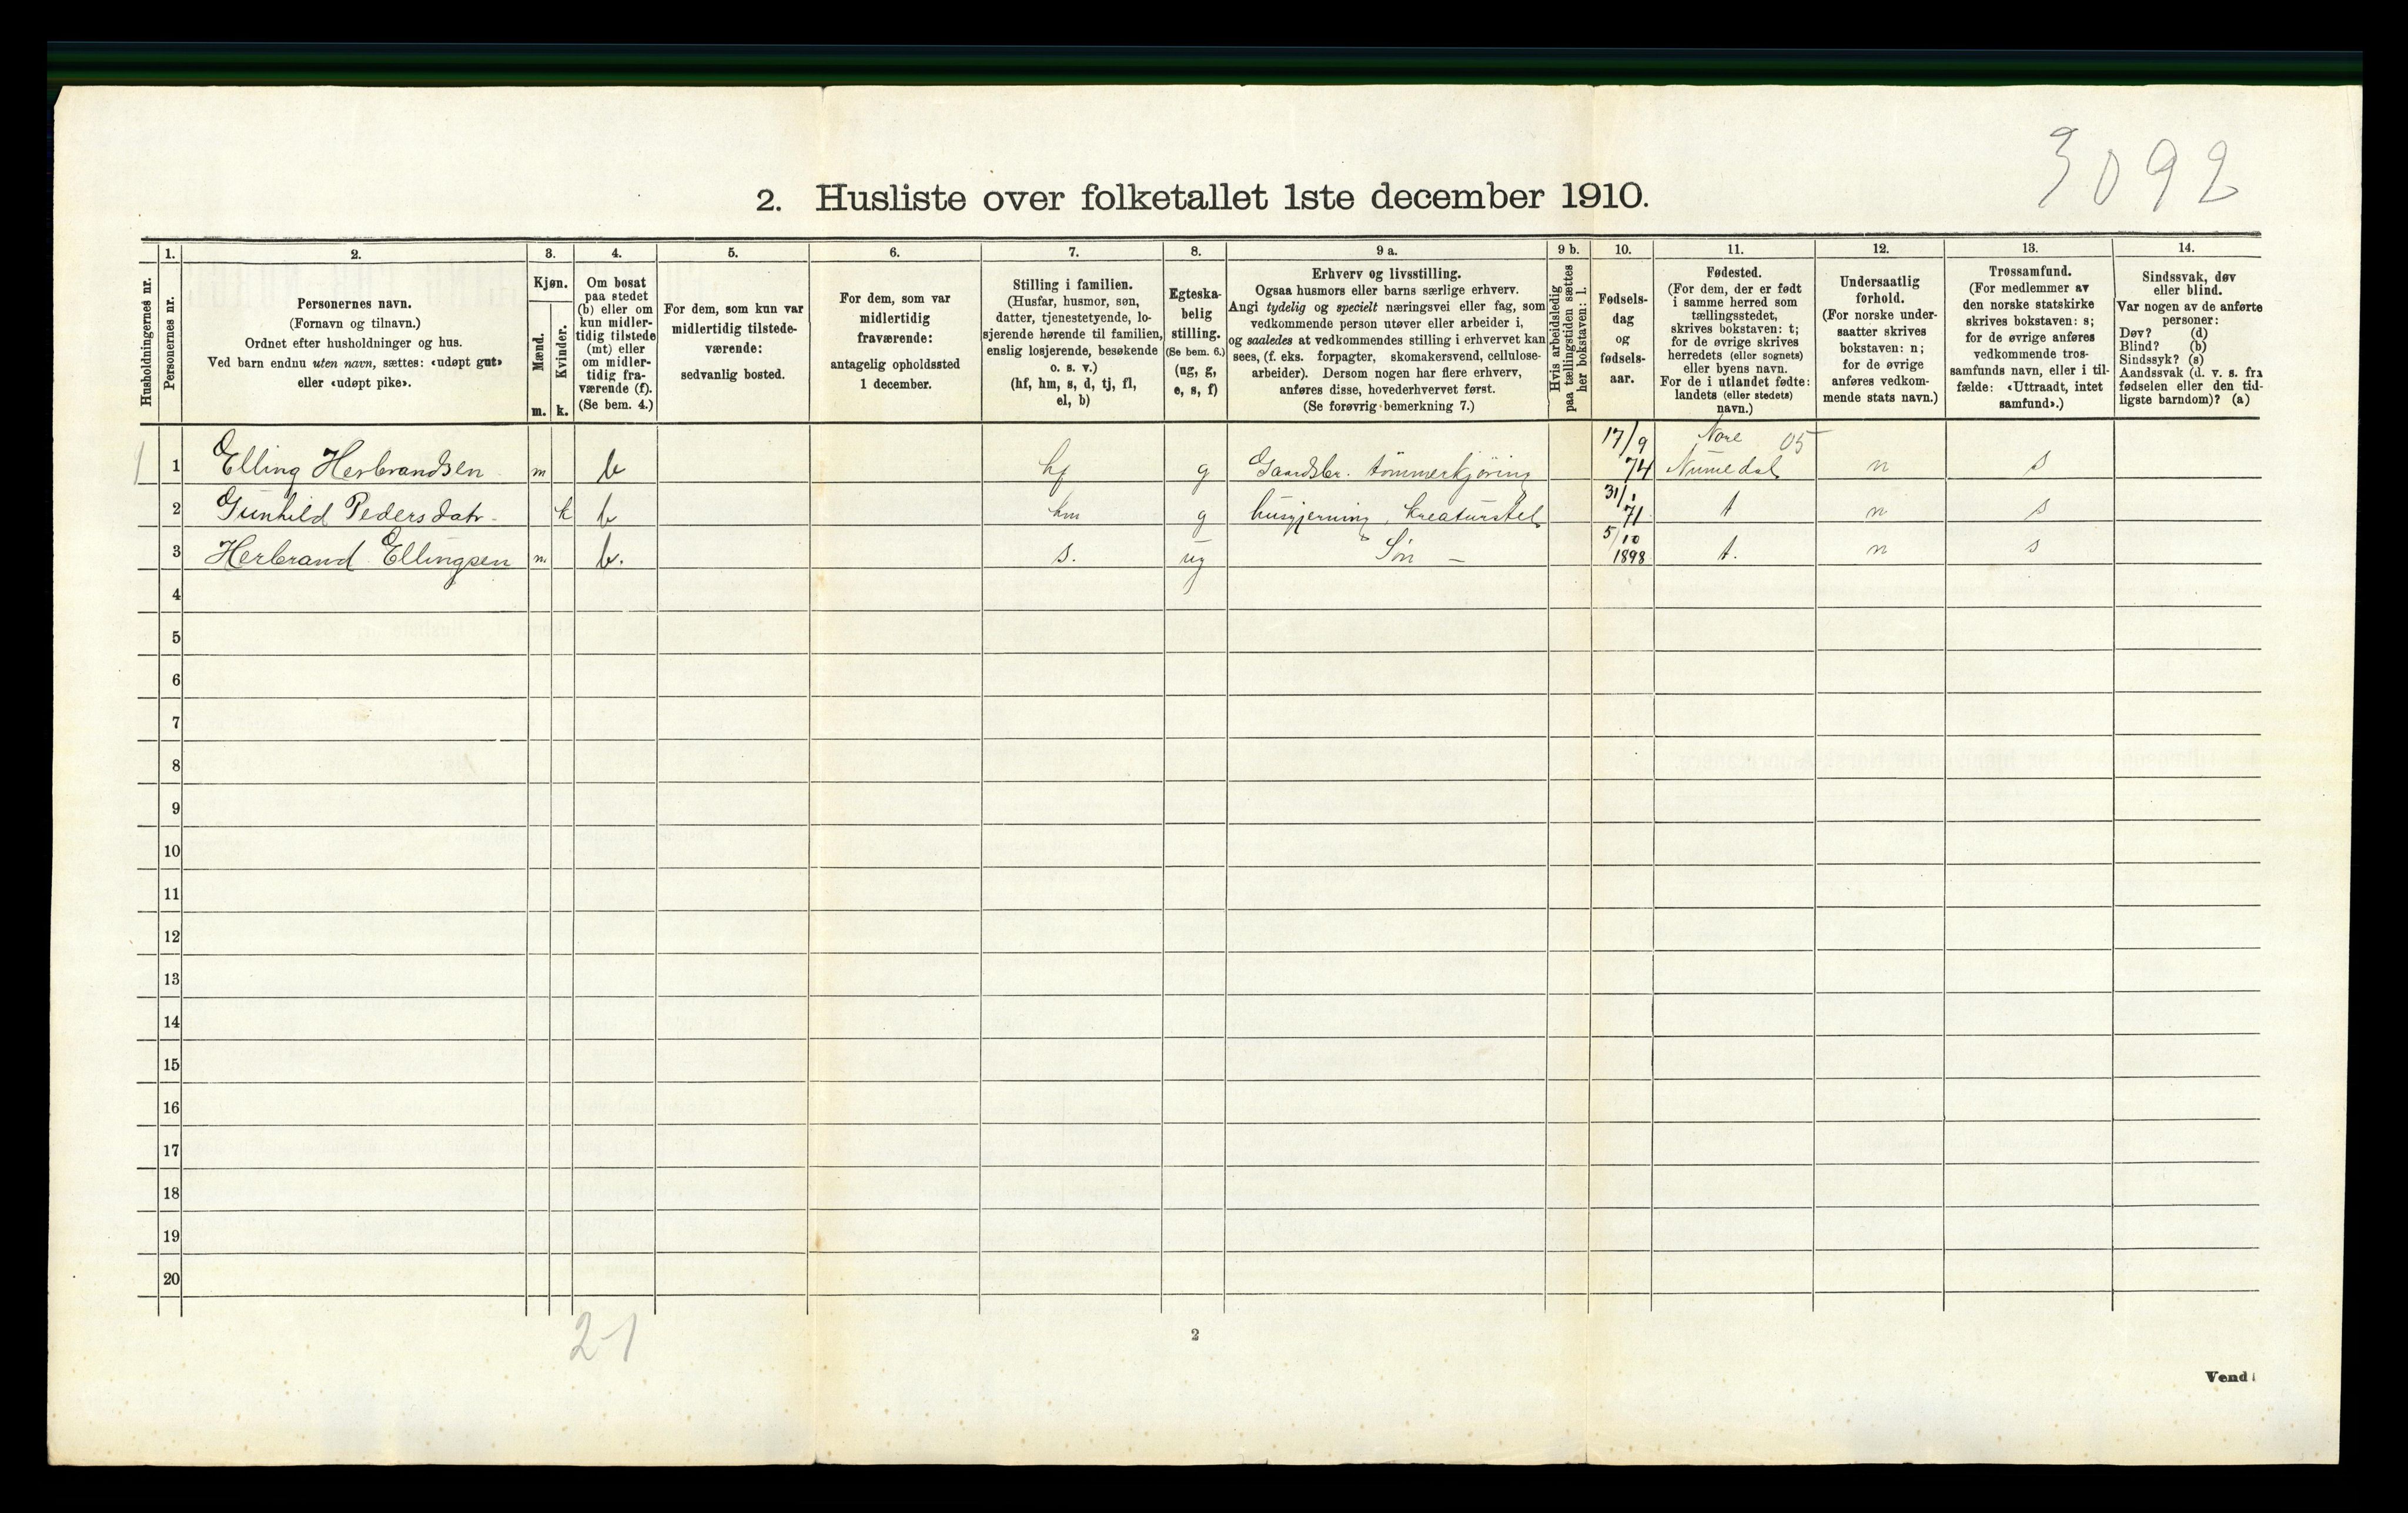 3092
2. Husliste over folketallet 1ste december 1910.
Husholdningernes nr.
1.
Personernes nr.
2.
Personernes navn.
(Fornavn og tilnavn.)
Ordnet efter husholdninger og hus.
Ved barn endnu uten navn, sættes: «udøpt gut»
eller «udøpt pike».
3.
Kjøn.
Mænd.
Kvinder.
m. k.
4.
Om bosat
paa stedet
(b) eller om
kun midler-
tidig tilstede
(mt) eller
om midler-
tidig fra-
værende (f).
(Se bem. 4.)
5.
For dem, som kun var
midlertidig tilstede-
værende:
sedvanlig bosted.
6.
For dem, som var
midlertidig
fraværende:
antagelig opholdssted
1 december.
7.
Stilling i familien.
(Husfar, husmor, søn,
datter, tjenestetyende, lo-
sjerende hørende til familien,
enslig losjerende, besøkende
o. s. v.)
(hf, hm, s, d, tj, fl,
el, b)
8.
Egteska-
belig
stilling.
(Se bem. 6.)
(ug, g,
e, s, f)
9 a.
Erhverv og livsstilling.
Ogsaa husmors eller barns særlige erhverv.
Angi tydelig og specielt næringsvei eller fag, som
vedkommende person utøver eller arbeider i,
og saaledes at vedkommendes stilling i erhvervet kan
sees, (f. eks. forpagter, skomakersvend, cellulose-
arbeider). Dersom nogen har flere erhverv,
anføres disse, hovederhvervet først.
(Se forøvrig bemerkning 7.)
9 b.
Hvis arbeidsledig
paa tællingstiden sættes
her bokstaven: l.
10.
Fødsels-
dag
og
fødsels-
aar.
11.
Fødested.
(For dem, der er født
i samme herred som
tællingsstedet,
skrives bokstaven: t;
for de øvrige skrives
herredets (eller sognets)
eller byens navn.
For de i utlandet fødte:
landets (eller stedets)
navn.)
12.
Undersaatlig
forhold.
(For norske under-
saatter skrives
bokstaven: n;
for de øvrige
anføres vedkom-
mende stats navn.)
13.
Trossamfund.
(For medlemmer av
den norske statskirke
skrives bokstaven: s;
for de øvrige anføres
vedkommende tros-
samfunds navn, eller i til-
fælde: «Uttraadt, intet
samfund».)
14.
Sindssvak, døv
eller blind.
Var nogen av de anførte
personer:
Døv? (d)
Blind? (b)
Sindssyk? (s)
Aandssvak (d. v. s. fra
fødselen eller den tid-
ligste barndom)? (a)
17/9 Nore 05
1 1 Elling Herbrandsen m b hf g Gaardsbr. tömmerkjöring 74 Numedal n s
31/1
2 Gunhild Pedersdatr. k b hm g husgjerning, kreaturstel 71 t n s
5/10
3 Herbrand Ellingsen m. b. s. ug Sön — 1898 t. n s
4
5
6
7
8
9
10
11
12
13
14
15
16
17
18
19
20
2-1
2
Vend!